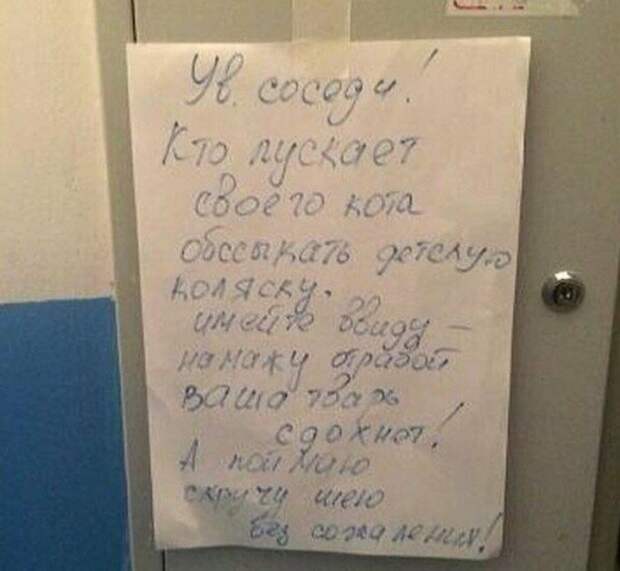 Ув. соседи!
Кто пускает
своего кота
обссыкать детскую
коляску.
имейте ввиду –
намажу отравой
ваша тварь
сдохнет!
А поймаю
скручу шею
без сожаления!